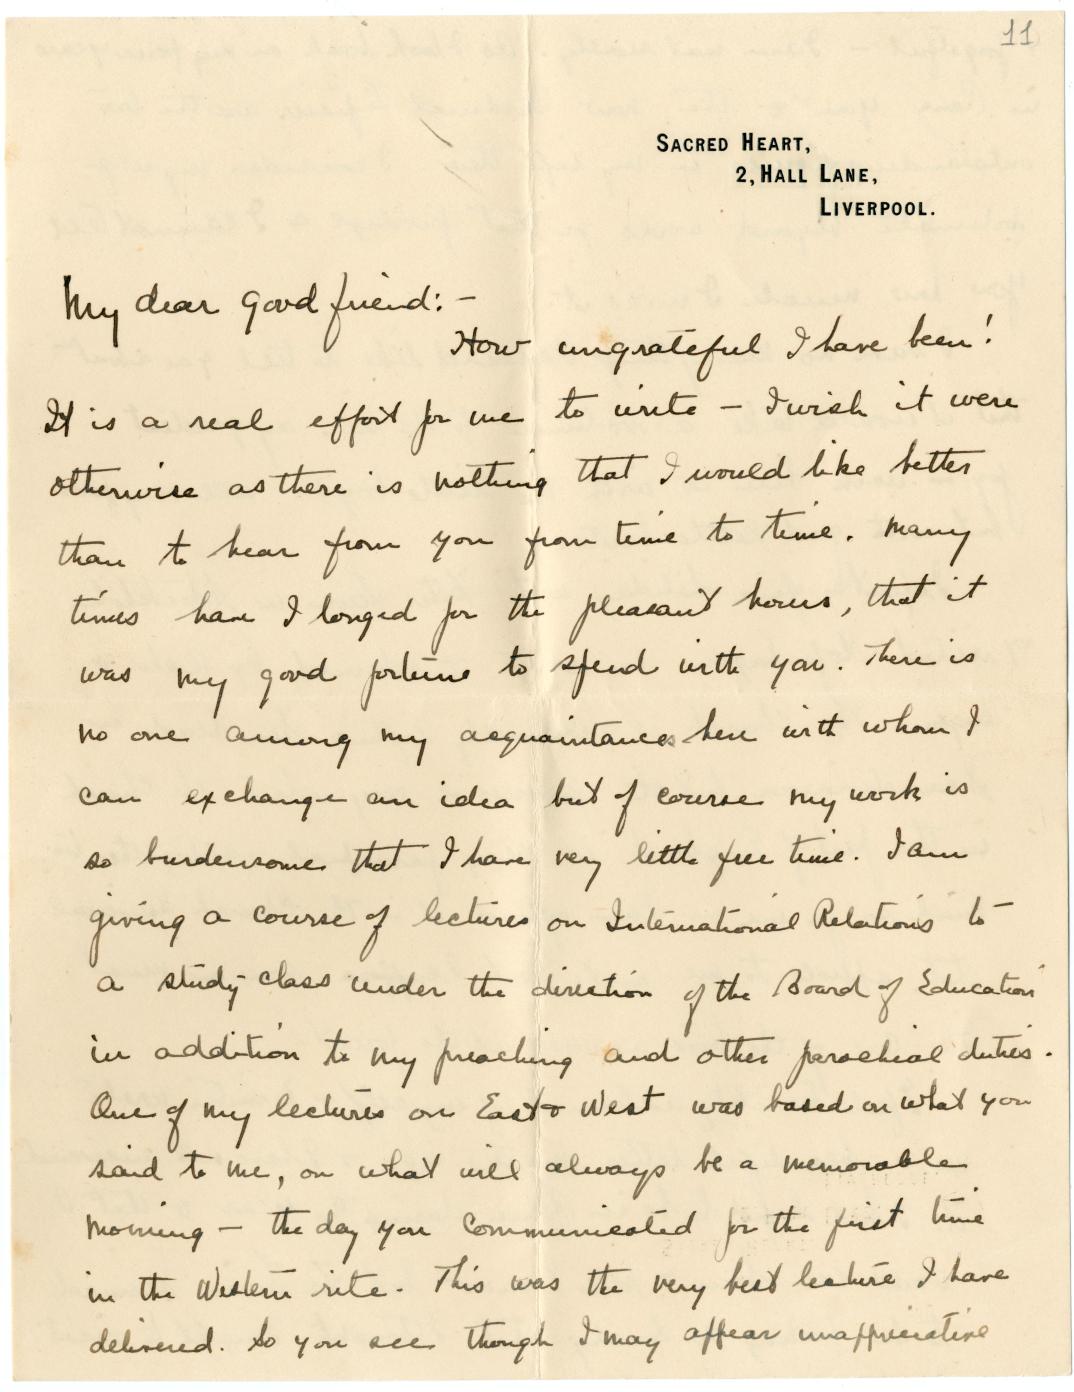 11
SACRED HEART,
2, HALL LANE,
LIVERPOOL.
My dear good friend: -
How ungrateful I have been!
It is a real effort for me to write - I wish it were
otherwise as there is nothing that I would like better
than to hear from you from time to time. Many
times have I longed for the pleasant hours, that it
was my good fortune to spend with you. There is
no one among my acquaintances here with whom I
can exchange an idea but of course my work is
so burdensome that I have very little free time. I am
giving a course of lectures on International Relations to
a study class under the direction of the Board of Education
in addition to my preaching and other parochial duties.
One of my lectures on East & West was based on what you
said to me, on what will always be a memorable
morning - the day you communicated for the first time
in the Western rite. This was the very best lecture I have
delivered. So you see though I may appear unappreciative